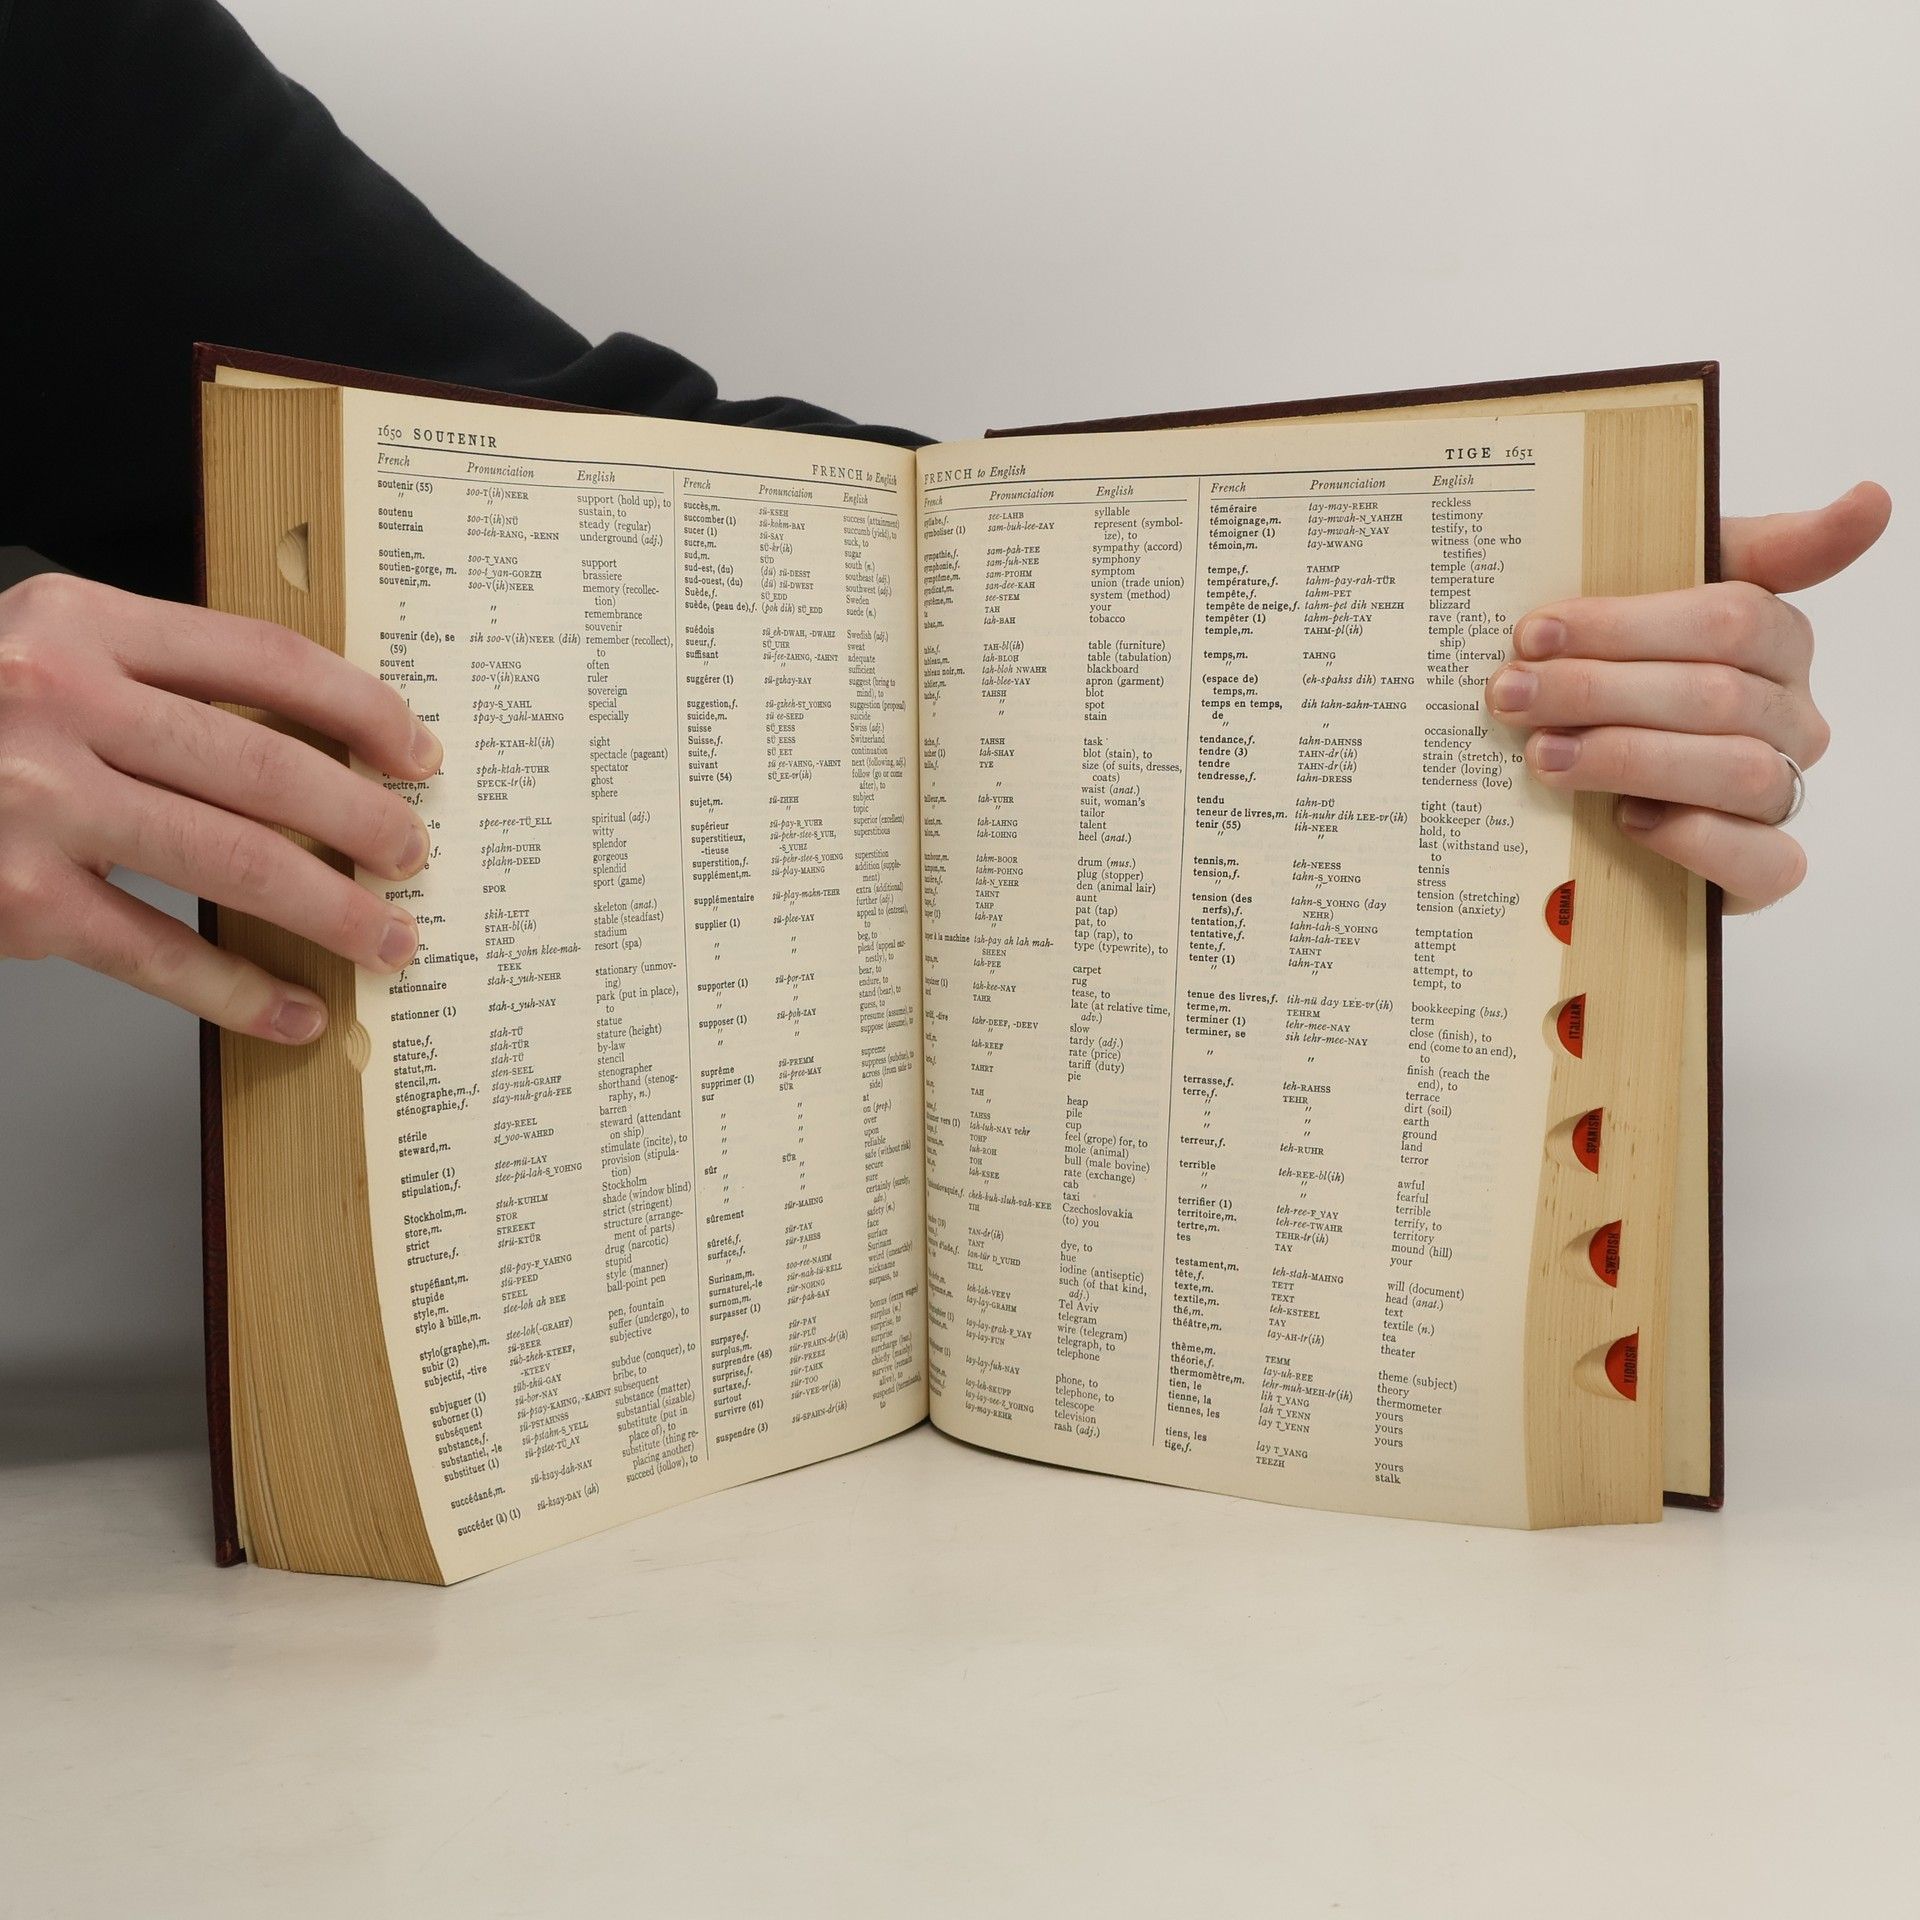 1650 SOUTENIR
FRENCH to English
French Pronunciation English
soutenir (55) soo-T(ih)NEER support (hold up), to
" " sustain, to
soutenu soo-T(ih)NÜ steady (regular)
souterrain soo-teh-RANG, -RENN underground (adj.)
soutien,m. soo-T_YANG support
soutien-gorge, m. soo-t_yan-GORZH brassiere
souvenir,m. soo-V(ih)NEER memory (recollec-
tion)
" " remembrance
" " souvenir
souvenir (de), se sih soo-V(ih)NEER (dih) remember (recollect),
(59) to
souvent soo-VAHNG often
souverain,m. soo-V(ih)RANG ruler
" " sovereign
spay-S_YAHL special
spay-s_yahl-MAHNG especially
speh-KTAH-kl(ih) sight
" spectacle (pageant)
speh-ktah-TUHR spectator
spectre,m. SPECK-tr(ih) ghost
SFEHR sphere
-le spee-ree-TÜ_ELL spiritual (adj.)
" witty
splahn-DUHR splendor
splahn-DEED gorgeous
" splendid
sport,m. SPOR sport (game)
skih-LETT skeleton (anat.)
STAH-bl(ih) stable (steadfast)
STAHD stadium
climatique, stah-s_yohn klee-mah- resort (spa)
f. TEEK
stationnaire stah-s_yuh-NEHR stationary (unmov-
ing)
stationner (1) stah-s_yuh-NAY park (put in place),
to
statue,f. stah-TÜ statue
stature,f. stah-TÜR stature (height)
statut,m. stah-TÜ by-law
stencil,m. sten-SEEL stencil
sténographe,m.,f. stay-nuh-GRAHF stenographer
sténographie,f. stay-nuh-grah-FEE shorthand (stenog-
raphy, n.)
stérile stay-REEL barren
steward,m. st_yoo-WAHRD steward (attendant
on ship)
stimuler (1) stee-mü-LAY stimulate (incite), to
stipulation,f. stee-pü-lah-S_YOHNG provision (stipula-
tion)
Stockholm,m. stuh-KUHLM Stockholm
store,m. STOR shade (window blind)
strict STREEKT strict (stringent)
structure,f. strü-KTÜR structure (arrange-
ment of parts)
stupéfiant,m. stü-pay-F_YAHNG drug (narcotic)
stupide stü-PEED stupid
style,m. STEEL style (manner)
stylo à bille,m. stee-loh ah BEE ball-point pen
stylo(graphe),m. stee-loh(-GRAHF) pen, fountain
subir (2) sü-BEER suffer (undergo), to
subjectif, -tive süb-zheh-KTEEF, subjective
-KTEEV
subjuguer (1) süb-zhü-GAY subdue (conquer), to
suborner (1) sü-bor-NAY bribe, to
subséquent sü-psay-KAHNG, -KAHNT subsequent
substance,f. sü-PSTAHNSS substance (matter)
substantiel, -le sü-pstahn-S_YELL substantial (sizable)
substituer (1) sü-pstee-TÜ_AY substitute (put in
place of), to
succédané,m. sü-ksay-dah-NAY substitute (thing re-
placing another)
succéder (à) (1) sü-ksay-DAY (ah) succeed (follow), to
French Pronunciation English
succès,m. sü-KSEH success (attainment)
succomber (1) sü-kohm-BAY succumb (yield), to
sucer (1) sü-SAY suck, to
sucre,m. SÜ-kr(ih) sugar
sud,m. SÜD south (n.)
sud-est, (du) (dü) sü-DESST southeast (adj.)
sud-ouest, (du) (dü) sü-DWEST southwest (adj.)
Suède,f. SÜ_EDD Sweden
suède, (peau de),f. (poh dih) SÜ_EDD suede (n.)
suédois sü_eh-DWAH, -DWAHZ Swedish (adj.)
sueur,f. SÜ_UHR sweat
suffisant sü-fee-ZAHNG, -ZAHNT adequate
" " sufficient
suggérer (1) sü-gzhay-RAY suggest (bring to
mind), to
suggestion,f. sü-gzheh-ST_YOHNG suggestion (proposal)
suicide,m. sü ee-SEED suicide
suisse SÜ_EESS Swiss (adj.)
Suisse,f. SÜ_EESS Switzerland
suite,f. SÜ_EET continuation
suivant sü ee-VAHNG, -VAHNT next (following, adj.)
suivre (54) SÜ_EE-vr(ih) follow (go or come
after), to
sujet,m. sü-ZHEH subject
" " topic
supérieur sü-pay-R_YUHR superior (excellent)
superstitieux, sü-pehr-stee-S_YUH, superstitious
-tieuse -S_YUHZ
superstition,f. sü-pehr-stee-S_YOHNG superstition
supplément,m. sü-play-MAHNG addition (supple-
ment)
supplémentaire sü-play-mahn-TEHR extra (additional)
" " further (adj.)
supplier (1) sü-plee-YAY appeal to (entreat),
to
" " beg, to
" " plead (appeal ear-
nestly), to
supporter (1) sü-por-TAY bear, to
" " endure, to
" " stand (bear), to
supposer (1) sü-poh-ZAY guess, to
" " presume (assume), to
" " suppose (assume), to
suprême sü-PREMM supreme
supprimer (1) sü-pree-MAY suppress (subdue), to
sur SÜR across (from side to
side)
" " at
" " on (prep.)
" " over
" " upon
sûr SÜR reliable
" " safe (without risk)
" " secure
" " sure
sûrement sür-MAHNG certainly (surely,
adv.)
sûreté,f. sür-TAY safety (n.)
surface,f. sür-FAHSS face
" " surface
Surinam,m. soo-ree-NAHM Surinam
surnaturel,-le sür-nah-tü-RELL weird (unearthly)
surnom,m. sür-NOHNG nickname
surpasser (1) sür-pah-SAY surpass, to
surpaye,f. sür-PAY bonus (extra wages)
surplus,m. sür-PLÜ surplus (n.)
surprendre (48) sür-PRAHN-dr(ih) surprise, to
surprise,f. sür-PREEZ surprise
surtaxe,f. sür-TAHX surcharge (fee)
surtout sür-TOO chiefly (mainly)
survivre (61) sür-VEE-vr(ih) survive (remain
alive), to
suspendre (3) sü-SPAHN-dr(ih) suspend
to
FRENCH to English
TIGE 1651
French Pronunciation English
syllabe,f. see-LAHB syllable
symboliser (1) sam-buh-lee-ZAY represent (symbol-
ize), to
sympathie,f. sam-pah-TEE sympathy (accord)
symphonie,f. sam-fuh-NEE symphony
symptôme,m. sam-PTOHM symptom
syndicat,m. san-dee-KAH union (trade union)
système,m. see-STEM system (method)
ta TAH your
tabac,m. tah-BAH tobacco
table,f. TAH-bl(ih) table (furniture)
tableau,m. tah-BLOH table (tabulation)
tableau noir,m. tah-bloh NWAHR blackboard
tablier,m. tah-blee-YAY apron (garment)
tache,f. TAHSH blot
" " spot
" " stain
tâche,f. TAHSH task
tacher (1) tah-SHAY blot (stain), to
taille,f. TYE size (of suits, dresses,
coats)
" " waist (anat.)
suit, woman's
tailleur,m. tah-YUHR tailor
talent,m. tah-LAHNG talent
talon,m. tah-LOHNG heel (anat.)
tambour,m. tahm-BOOR drum (mus.)
tampon,m. tahm-POHNG plug (stopper)
tanière,f. tah-N_YEHR den (animal lair)
tante,f. TAHNT aunt
tape,f. TAHP pat (tap)
taper (1) tah-PAY pat, to
" tap (rap), to
taper à la machine tah-pay ah lah mah- type (typewrite), to
SHEEN
tapis,m. tah-PEE carpet
" rug
taquiner (1) tah-kee-NAY tease, to
tard TAHR late (at relative time,
adv.)
tardif, -dive tahr-DEEF, -DEEV slow
" tardy (adj.)
tarif,m. tah-REEF rate (price)
" tariff (duty)
tarte,f. TAHRT pie
tas,m. TAH heap
" pile
tasse,f. TAHSS cup
tâtonner vers (1) tah-tuh-NAY vehr feel (grope) for, to
taupe,f. TOHP mole (animal)
taureau,m. tuh-ROH bull (male bovine)
taux,m. TOH rate (exchange)
taxi,m. tah-KSEE cab
" taxi
Tchécoslovaquie,f. cheh-kuh-sluh-vah-KEE Czechoslovakia
TIH (to) you
TAN-dr(ih) dye, to
TANT hue
tan-tür D_YUHD iodine (antiseptic)
TELL such (of that kind,
adj.)
teh-lah-VEEV Tel Aviv
lay-lay-GRAHM telegram
" wire (telegram)
lay-lay-grah-F_YAY telegraph, to
lay-lay-FUN telephone
phone, to
lay-lay-fuh-NAY telephone, to
lay-leh-SKUPP telescope
lay-lay-vee-Z_YOHNG television
tay-may-REHR rash (adj.)
French Pronunciation English
téméraire tay-may-REHR reckless
témoignage,m. tay-mwah-N_YAHZH testimony
témoigner (1) tay-mwah-N_YAY testify, to
témoin,m. tay-MWANG witness (one who
testifies)
tempe,f. TAHMP temple (anat.)
température,f. tahm-pay-rah-TÜR temperature
tempête,f. tahm-PET tempest
tempête de neige,f. tahm-pet dih NEHZH blizzard
tempêter (1) tahm-peh-TAY rave (rant), to
temple,m. TAHM-pl(ih) temple (place of
ship)
temps,m. TAHNG time (interval)
" " weather
(espace de) (eh-spahss dih) TAHNG while (short
temps,m.
temps en temps, dih tahn-zahn-TAHNG occasional
de
" " occasionally
tendance,f. tahn-DAHNSS tendency
tendre (3) TAHN-dr(ih) strain (stretch), to
tendre TAHN-dr(ih) tender (loving)
tendresse,f. tahn-DRESS tenderness (love)
tendu tahn-DÜ tight (taut)
teneur de livres,m. tih-nuhr dih LEE-vr(ih) bookkeeper (bus.)
tenir (55) tih-NEER hold, to
" " last (withstand use),
to
tennis,m. teh-NEESS tennis
tension,f. tahn-S_YOHNG stress
" " tension (stretching)
tension (des tahn-S_YOHNG (day tension (anxiety)
nerfs),f. NEHR)
tentation,f. tahn-tah-S_YOHNG temptation
tentative,f. tahn-tah-TEEV attempt
tente,f. TAHNT tent
tenter (1) tahn-TAY attempt, to
" " tempt, to
tenue des livres,f. tih-nü day LEE-vr(ih) bookkeeping (bus.)
terme,m. TEHRM term
terminer (1) tehr-mee-NAY close (finish), to
terminer, se sih tehr-mee-NAY end (come to an end),
to
" " finish (reach the
end), to
terrasse,f. teh-RAHSS terrace
terre,f. TEHR dirt (soil)
" " earth
" " ground
" " land
terreur,f. teh-RUHR terror
terrible teh-REE-bl(ih) awful
" " fearful
" " terrible
terrifier (1) teh-ree-F_YAY terrify, to
territoire,m. teh-ree-TWAHR territory
tertre,m. TEHR-tr(ih) mound (hill)
tes TAY your
testament,m. teh-stah-MAHNG will (document)
tête,f. TETT head (anat.)
texte,m. TEXT text
textile,m. teh-KSTEEL textile (n.)
thé,m. TAY tea
théâtre,m. tay-AH-tr(ih) theater
thème,m. TEMM theme (subject)
théorie,f. tay-uh-REE theory
thermomètre,m. tehr-muh-MEH-tr(ih) thermometer
tien, le lih T_YANG yours
tienne, la lah T_YENN yours
tiennes, les lay T_YENN yours
tiens, les lay T_YANG yours
tige,f. TEEZH stalk
GERMAN
ITALIAN
SPANISH
SWEDISH
YIDDISH